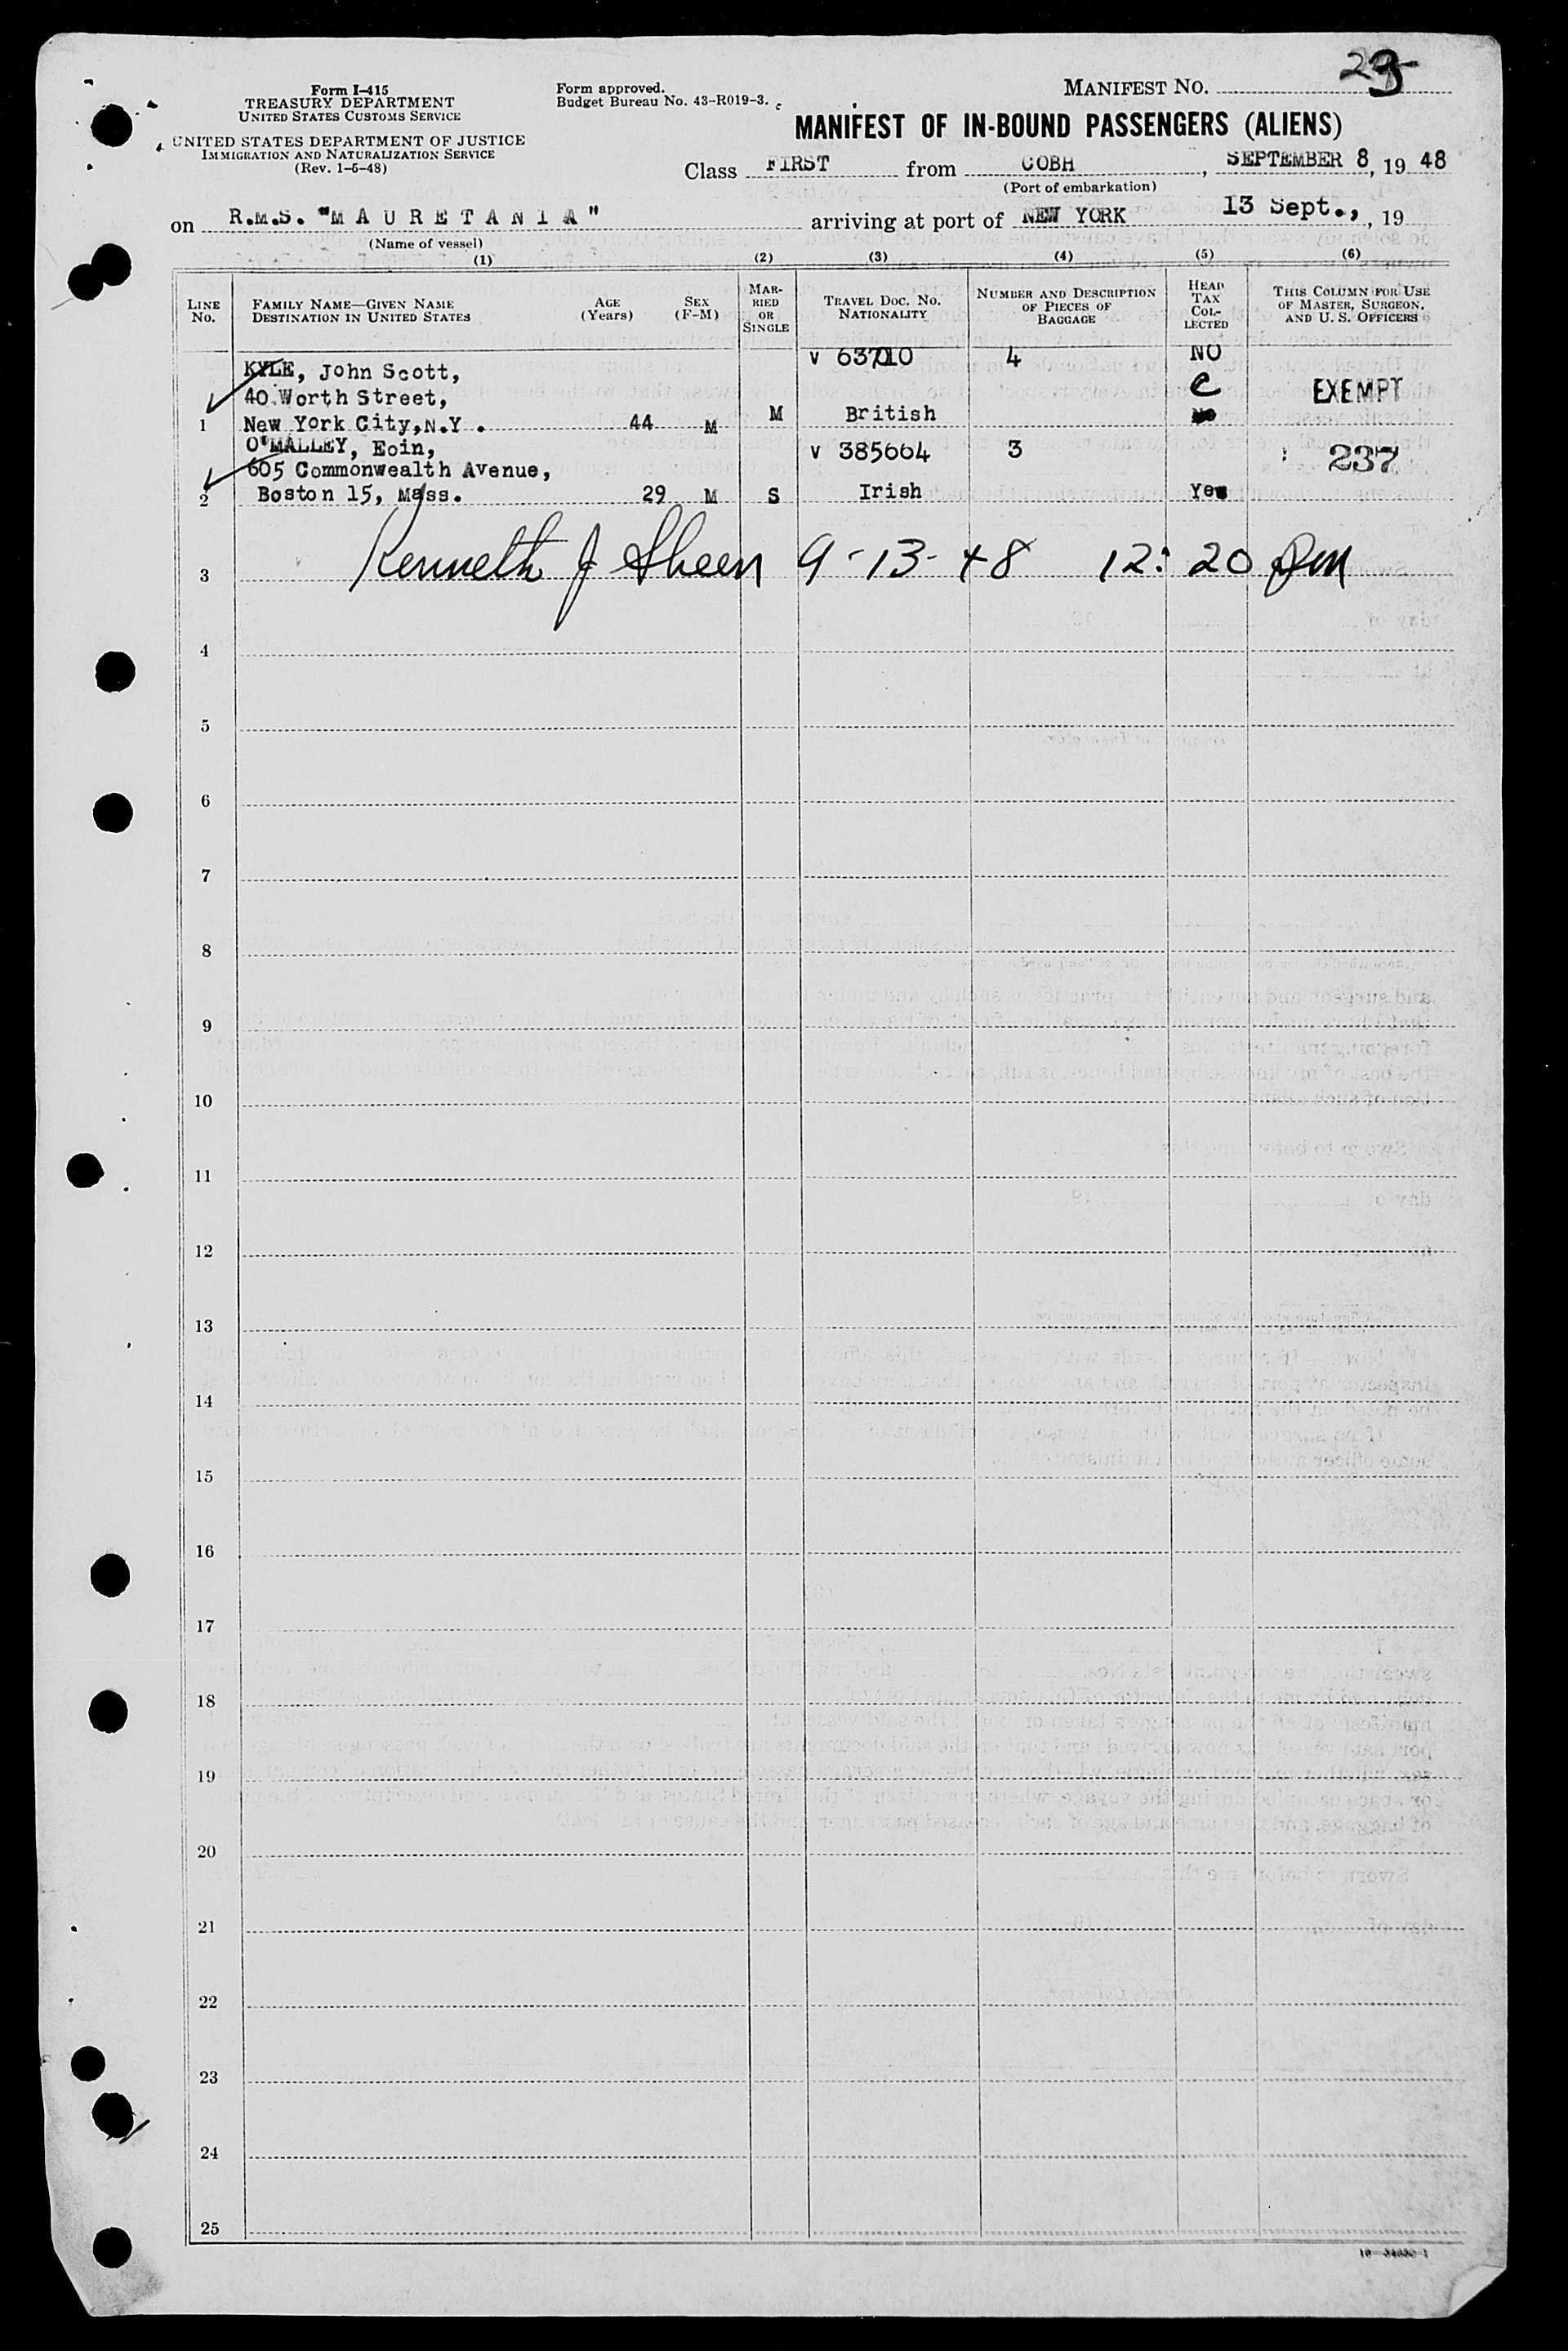 Form I-415
TREASURY DEPARTMENT
UNITED STATES CUSTOMS SERVICE
UNITED STATES DEPARTMENT OF JUSTICE
IMMIGRATION AND NATURALIZATION SERVICE
(Rev. 1-5-48)
Form approved.
Budget Bureau No. 43-R019-3.
MANIFEST NO.
MANIFEST OF IN-BOUND PASSENGERS (ALIENS)
Class FIRST from COBH, SEPTEMBER 8, 19 48
(Port of embarkation)
on R.M.S. "MAURETANIA" arriving at port of NEW YORK 13 Sept., , 19
(Name of vessel)
(1) (2) (3) (4) (5) (6)
LINE No.
FAMILY NAME—GIVEN NAME
DESTINATION IN UNITED STATES
AGE (Years)
SEX (F-M)
MARRIED OR SINGLE
TRAVEL DOC. NO.
NATIONALITY
NUMBER AND DESCRIPTION OF PIECES OF BAGGAGE
HEAD TAX COLLECTED
THIS COLUMN FOR USE OF MASTER, SURGEON, AND U. S. OFFICERS
KYLE, John Scott, V 4 NO
40 Worth Street, C EXEMPT
1 New York City, N.Y. 44 M M British
O'MALLEY, Eoin, V 385664 3
605 Commonwealth Avenue, 237
2 Boston 15, Mass. 29 M S Irish Yes
3 Kenneth J Sheen 9-13-48 12:20 pm
4
5
6
7
8
9
10
11
12
13
14
15
16
17
18
19
20
21
22
23
24
25